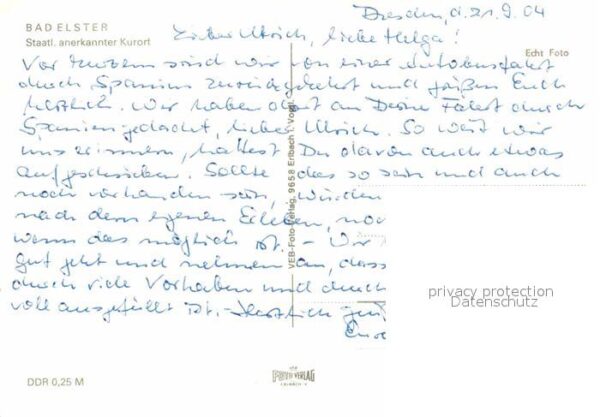 BAD ELSTER
Staatl. anerkannter Kurort
Echt Foto
Dresden, d. 21.9.04
Lieber Ulrich, liebe Helga!
Vor kurzem sind wir von einer Autobusfahrt
durch Spanien zurückgekehrt und grüßen Euch
herzlich. Wir haben dort an Deine Fahrt durch
Spanien gedacht, lieber Ulrich. So weit wir
uns erinnern, hattest Du davon auch etwas
aufgeschrieben. Sollte das so sein und auch
noch vorhanden sein, würden
nach dem eigenen Erleben, noc
wenn das möglich ist. – Wir
gut geht und nehmen an, dass
durch viele Vorhaben und durch
voll ausgefüllt ist. – Herzlich
VEB-Foto-Verlag, 9658 Erlbach i. Vogtl.
privacy protection
Datenschutz
FOTO VERLAG
ERLBACH
DDR 0,25 M